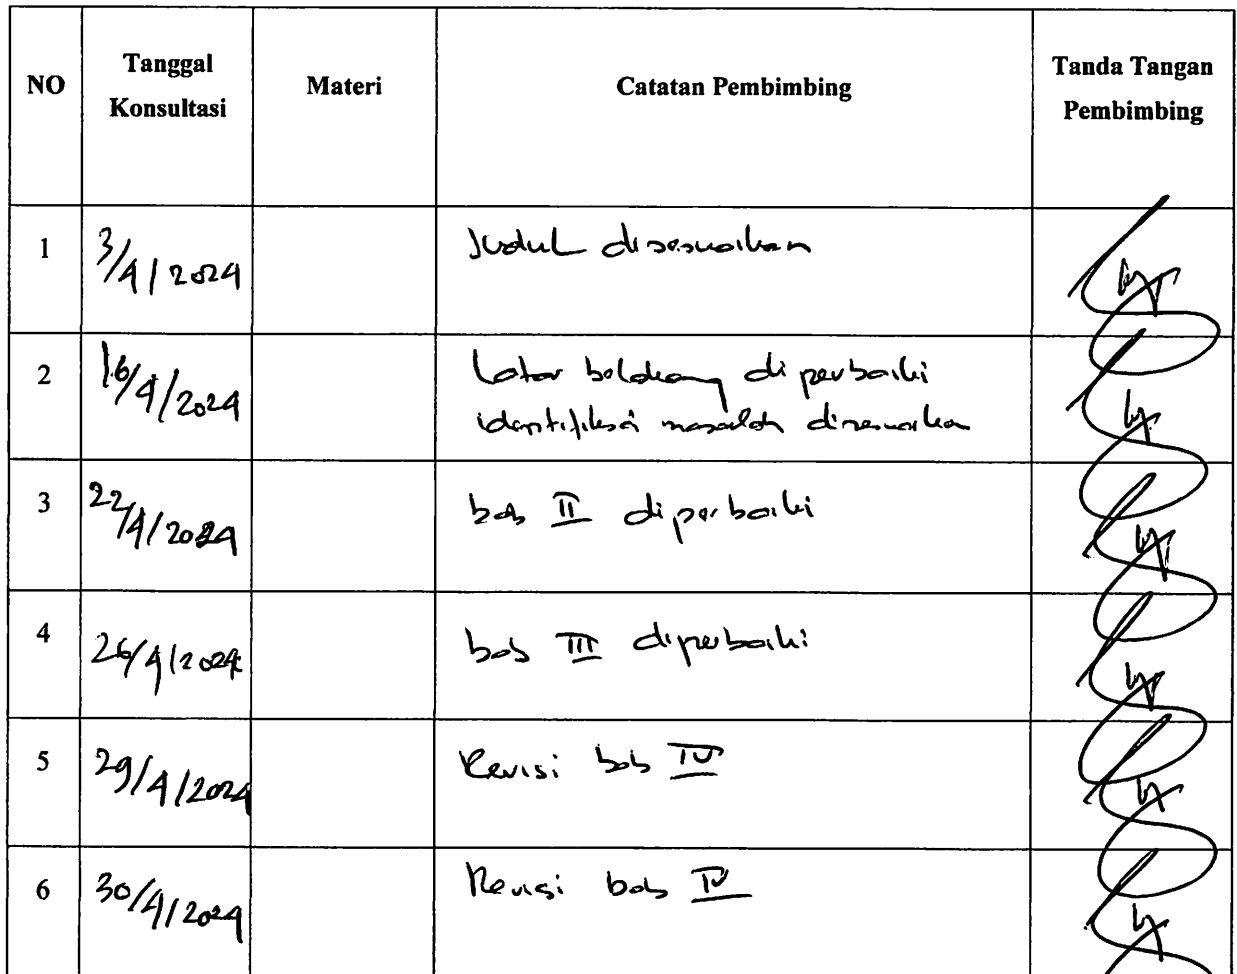 NO Tanggal Konsultasi Materi Catatan Pembimbing Tanda Tangan Pembimbing
1 3/4/2024 Judul disesuaikan
2 16/4/2024 Latar belakang diperbaiki
identifikasi masalah disesuaikan
3 22/4/2024 bab II diperbaiki
4 26/4/2024 bab III diperbaiki
5 29/4/2024 Revisi bab IV
6 30/4/2024 Revisi bab IV